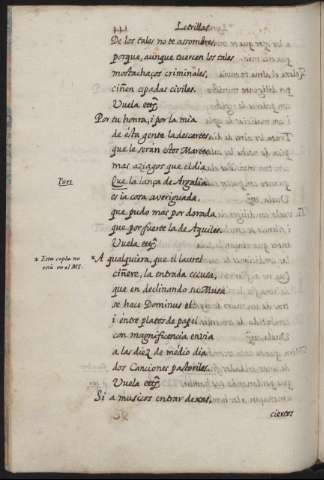 144 Letrillas
De los tales no te assombres,
porque, aunque tuercen los tales
mostachazos criminales,
ciñen espadas civiles.
Vuela etc.
Por tu honra, i por la mia
de esta gente la descartes,
que le seran estos Martes
mas aziagos que el dia.
Tiet Que la lança de Argalia
es ia cosa averiguada,
que pudo mas por dorada,
que por fuerte la de Aquiles.
Vuela etc.
* Esta copla no
está en el MS.
* A qualquiera, que el laurel
ciñere, la entrada escusa,
que en declinando su Musa
se hace Dominus el:
i entre platos de papel
con magnificencia envia
a las diez de medio dia
dos Canciones pastoriles.
Vuela etc.
Si a musicos entrar dexas,
ciertos